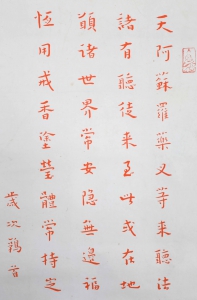 天阿蘇羅藥叉等来聽法
諸有聽徒来至此或在地
願諸世界常安隱無邊福
恆用戒香塗瑩體常持芝
歲次鶉首